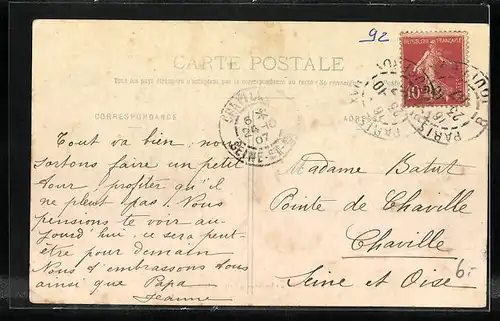 92
CARTE POSTALE
CORRESPONDANCE
ADRESSE
REPUBLIQUE FRANÇAISE
10
CHAVILLE
6
24-10
07
SEINE-ET-OISE
PARIS
Tout va bien, nous
sortons faire un petit
tour profiter qu'il
ne pleut pas! Nous
pensions te voir au-
jourd'hui, ce sera peut-
être pour demain
Nous t'embrassons tous
ainsi que Papa
Jeanne
Madame Batut
Pointe de Chaville
Chaville
Seine et Oise
6.-